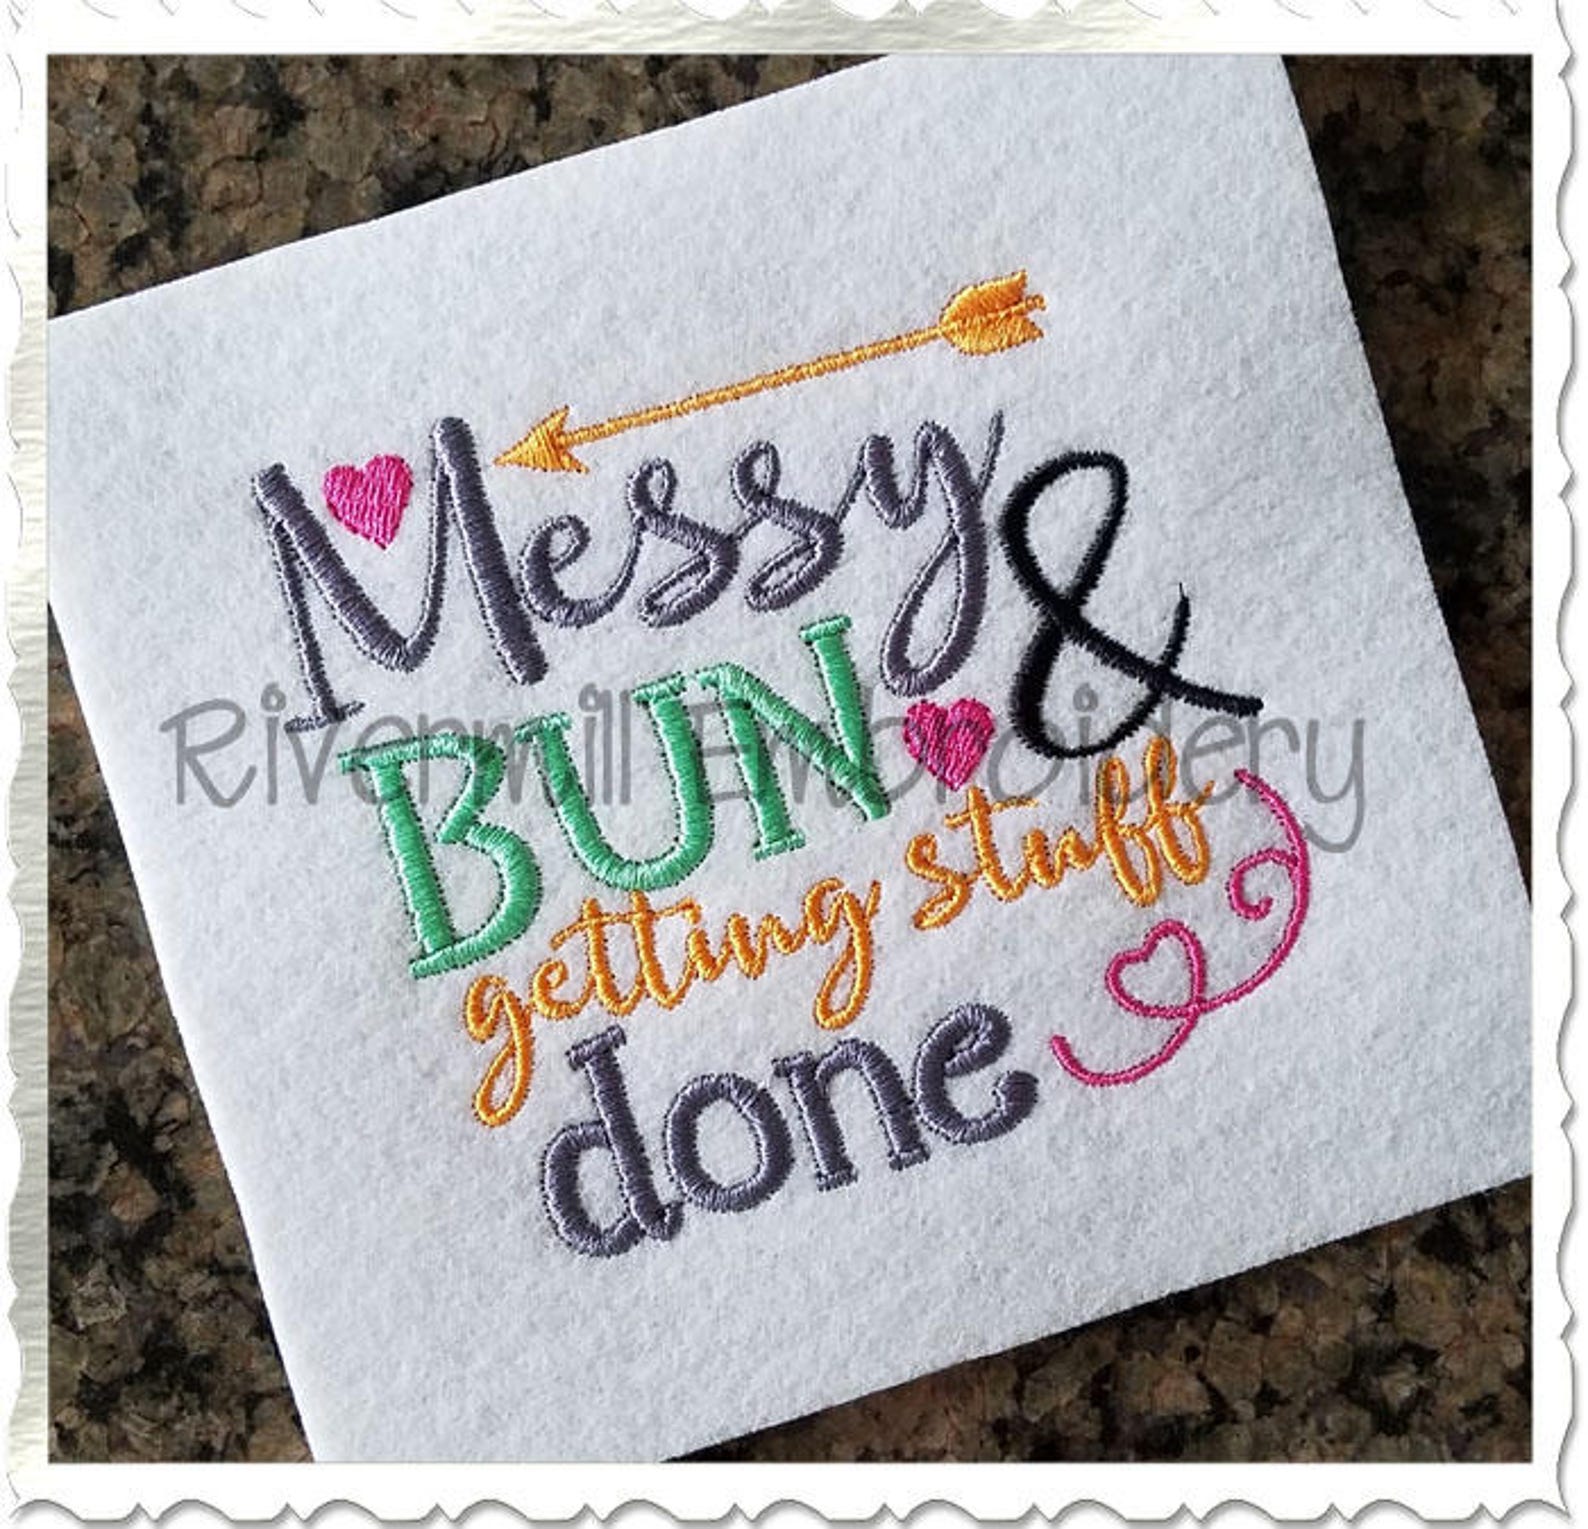 Messy &
BUN
getting stuff
done
Rivermill Embroidery